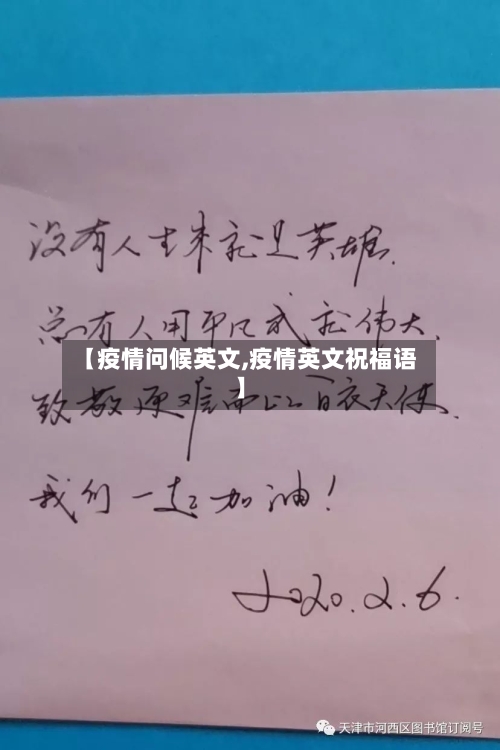 没有人生来就是英雄.
总有人用平凡成就伟大.
【疫情问候英文,疫情英文祝福语
】
致敬逆难而上的白衣天使.
我们一起加油!
2020.2.6.
天津市河西区图书馆订阅号